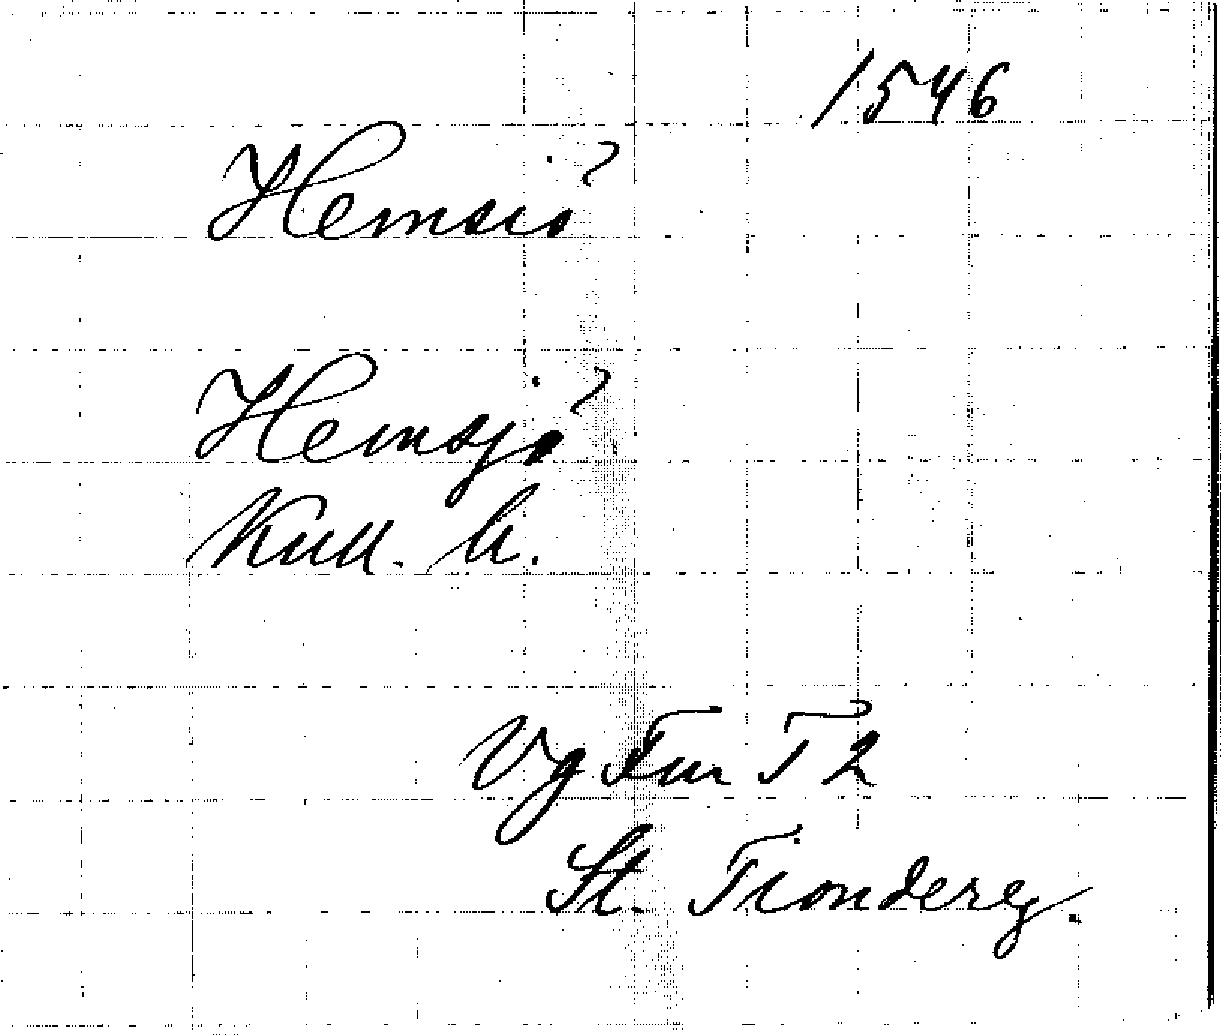 1546
Hemsiö
Hemsjö
Kull. h.
Vg Fur T 2
St. Tiondereg.